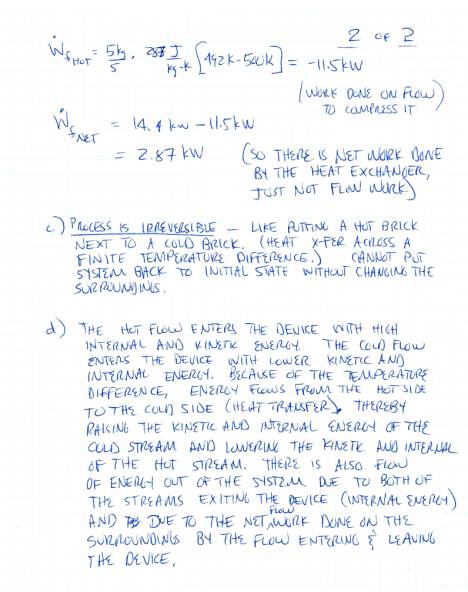 2 OF 2
Ẇf HOT = 5kg/s · 287 J/kg-K [492K-500K] = -11.5kW
(WORK DONE ON FLOW)
TO COMPRESS IT
Ẇf NET = 14.4 kW - 11.5 kW
= 2.87 kW (SO THERE IS NET WORK DONE
BY THE HEAT EXCHANGER,
JUST NOT FLOW WORK)
c.) PROCESS IS IRREVERSIBLE - LIKE PUTTING A HOT BRICK
NEXT TO A COLD BRICK. (HEAT X-FER ACROSS A
FINITE TEMPERATURE DIFFERENCE.) CANNOT PUT
SYSTEM BACK TO INITIAL STATE WITHOUT CHANGING THE
SURROUNDINGS.
d) THE HOT FLOW ENTERS THE DEVICE WITH HIGH
INTERNAL AND KINETIC ENERGY. THE COLD FLOW
ENTERS THE DEVICE WITH LOWER KINETIC AND
INTERNAL ENERGY. BECAUSE OF THE TEMPERATURE
DIFFERENCE, ENERGY FLOWS FROM THE HOT SIDE
TO THE COLD SIDE (HEAT TRANSFER), THEREBY
RAISING THE KINETIC AND INTERNAL ENERGY OF THE
COLD STREAM AND LOWERING THE KINETIC AND INTERNAL
OF THE HOT STREAM. THERE IS ALSO FLOW
OF ENERGY OUT OF THE SYSTEM DUE TO BOTH OF
THE STREAMS EXITING THE DEVICE (INTERNAL ENERGY)
AND DUE TO THE NET FLOW WORK DONE ON THE
SURROUNDINGS BY THE FLOW ENTERING & LEAVING
THE DEVICE.